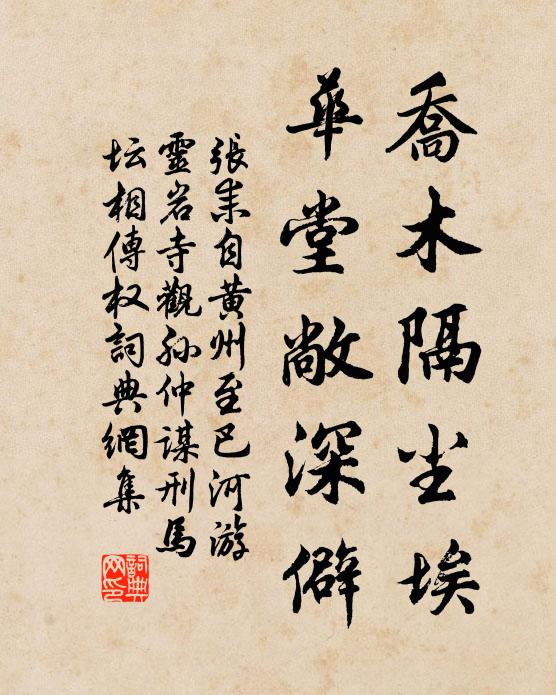 喬木隔尘埃
華堂敞深僻
張耒自黄州至巴河游
靈岩寺觀孙仲謀刑馬
坛相傳权詞典網集
詞典
网印